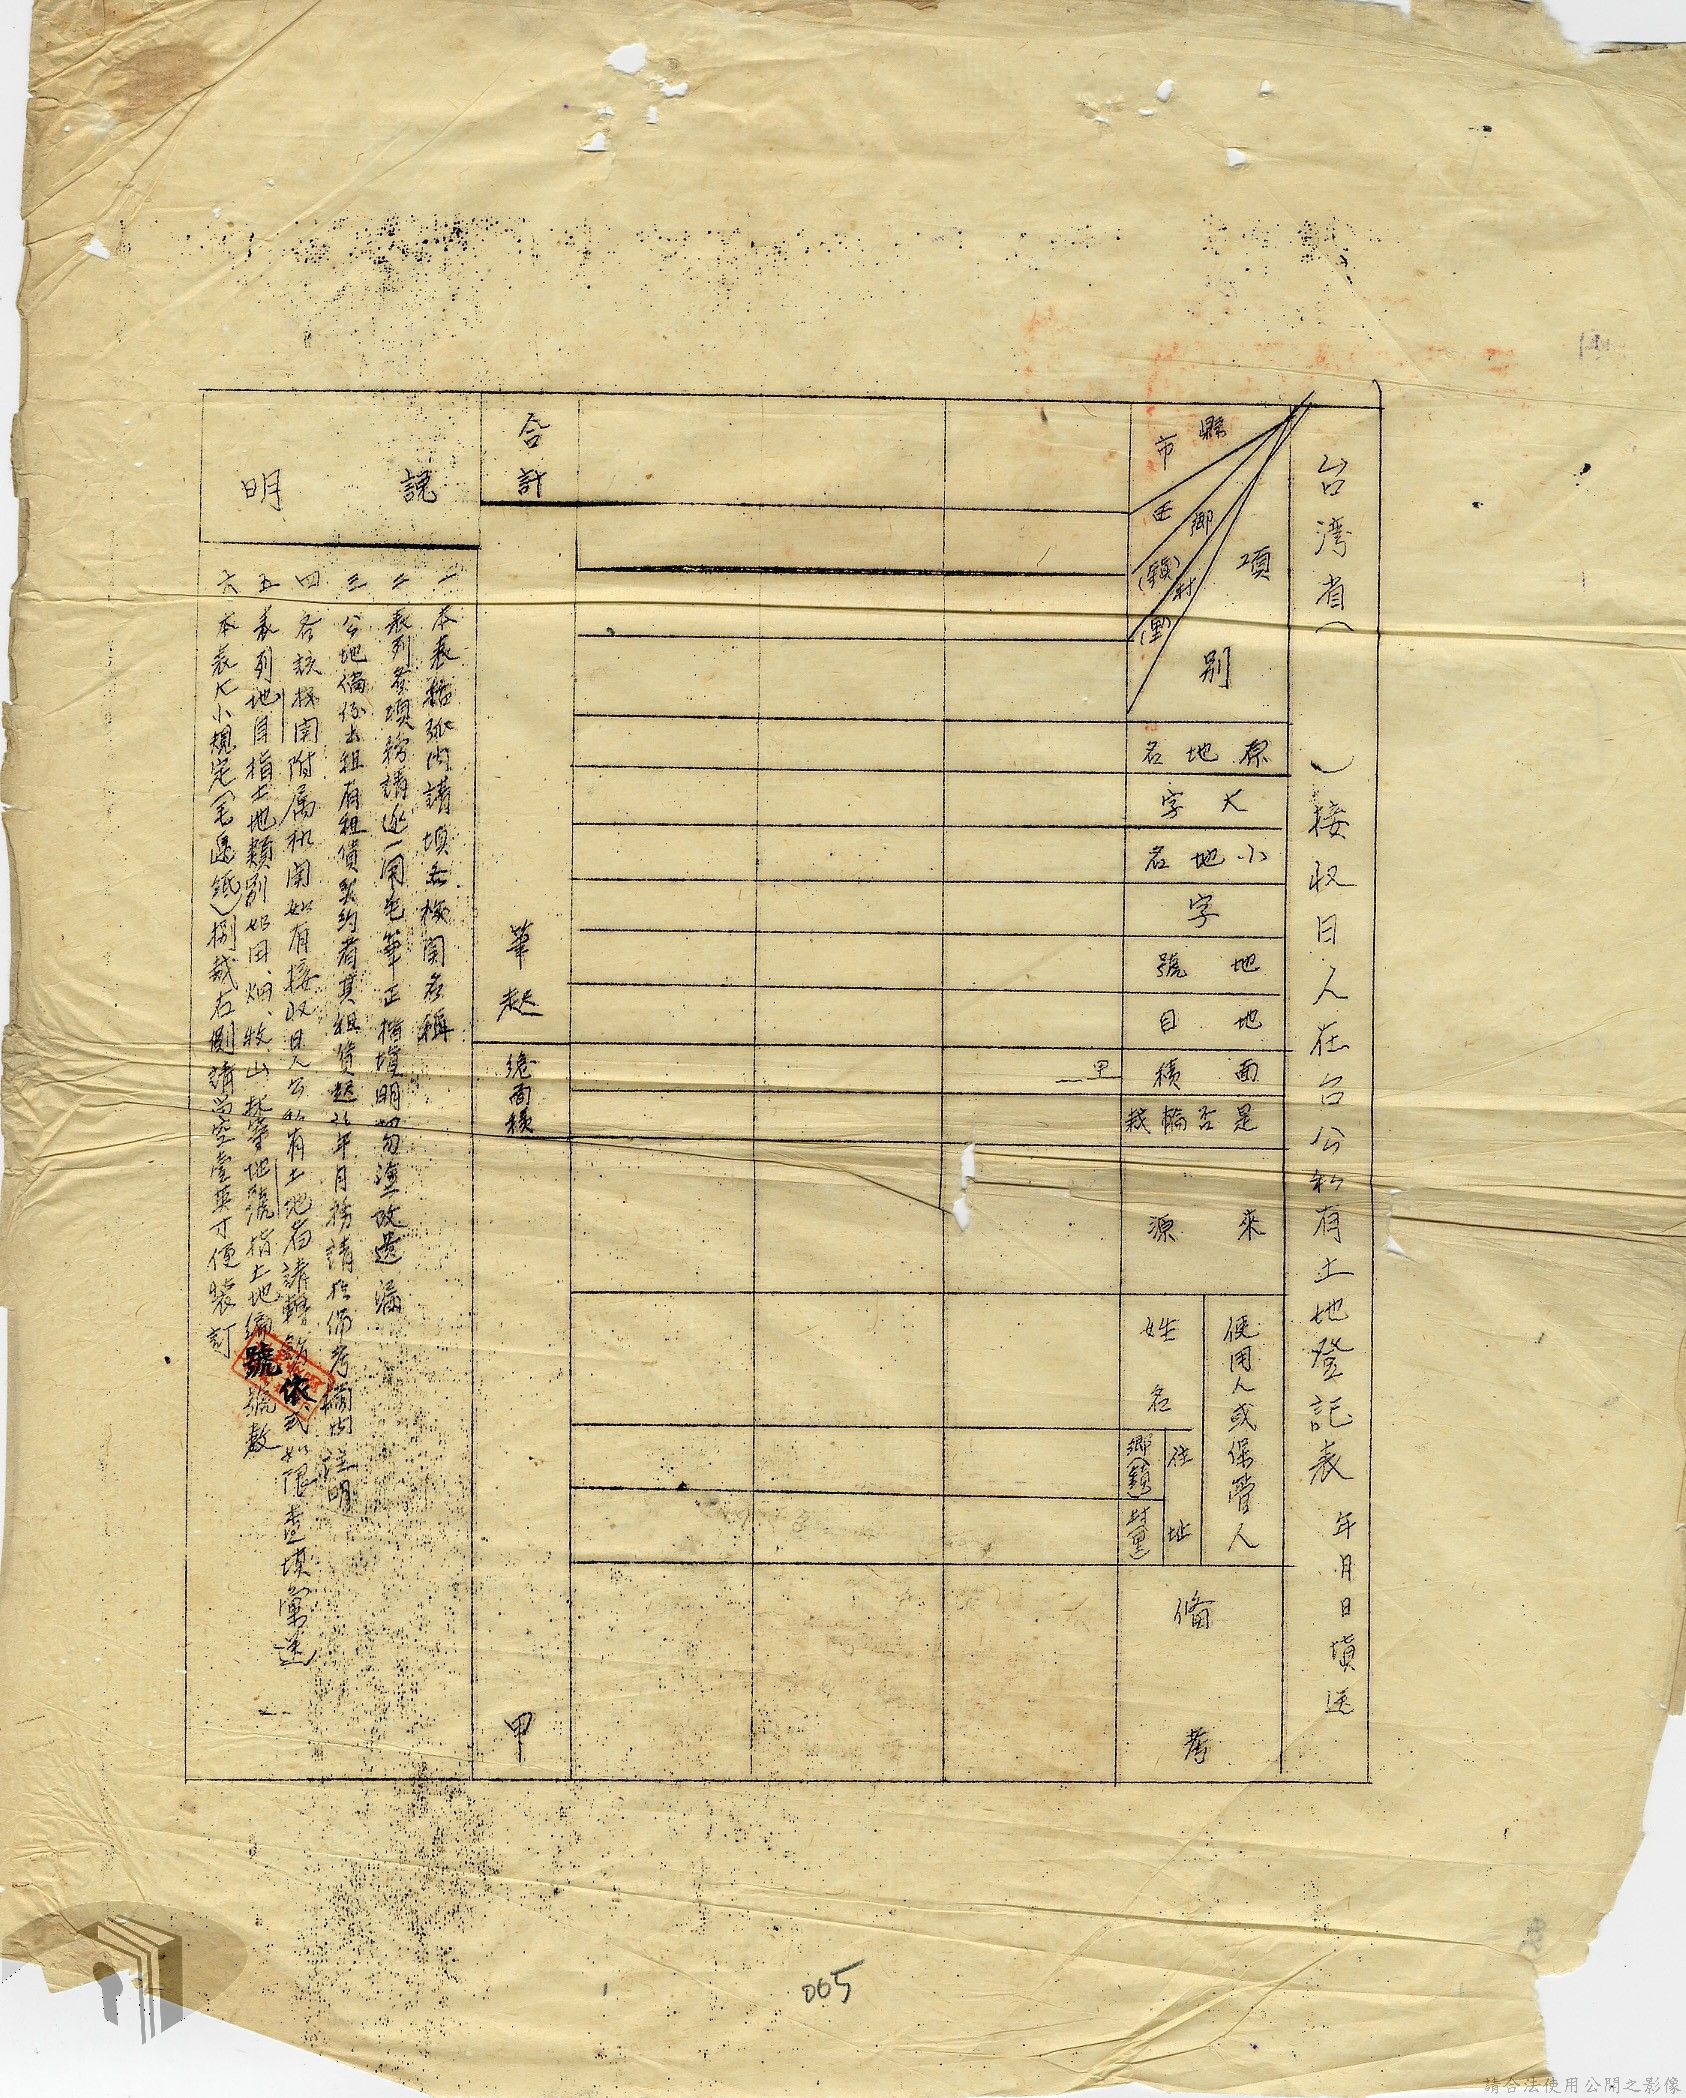 台湾省（　　）接收日人在台公私有土地登記表　年月日填送
項別
縣市
鄉(鎮)
村(里)
原地名
大字
小地名
字
地號
地目
面積
甲
是否輪栽
來源
使用人或保管人
姓名
住址
鄉(鎮)
村(里)
備考
合計
筆起
總面積
甲
說明
一 本表括弧內請填各機関名稱
二 表列各項務請逐一用毛筆正楷填明切勿塗改遺漏
三 公地倘係出租有租賃契約者其租賃起訖年月務請於備考欄內注明
四 各該機関附属机関如有接收日人公私有土地者請轉飭依式如限查填彙送
五 表列地目指土地類別如田、畑、牧、山、林等地號指土地編號號數
六 本表大小規定(毛邊紙)捌裁右側請留空壹英寸便裝訂
005
請合法使用公開之影像